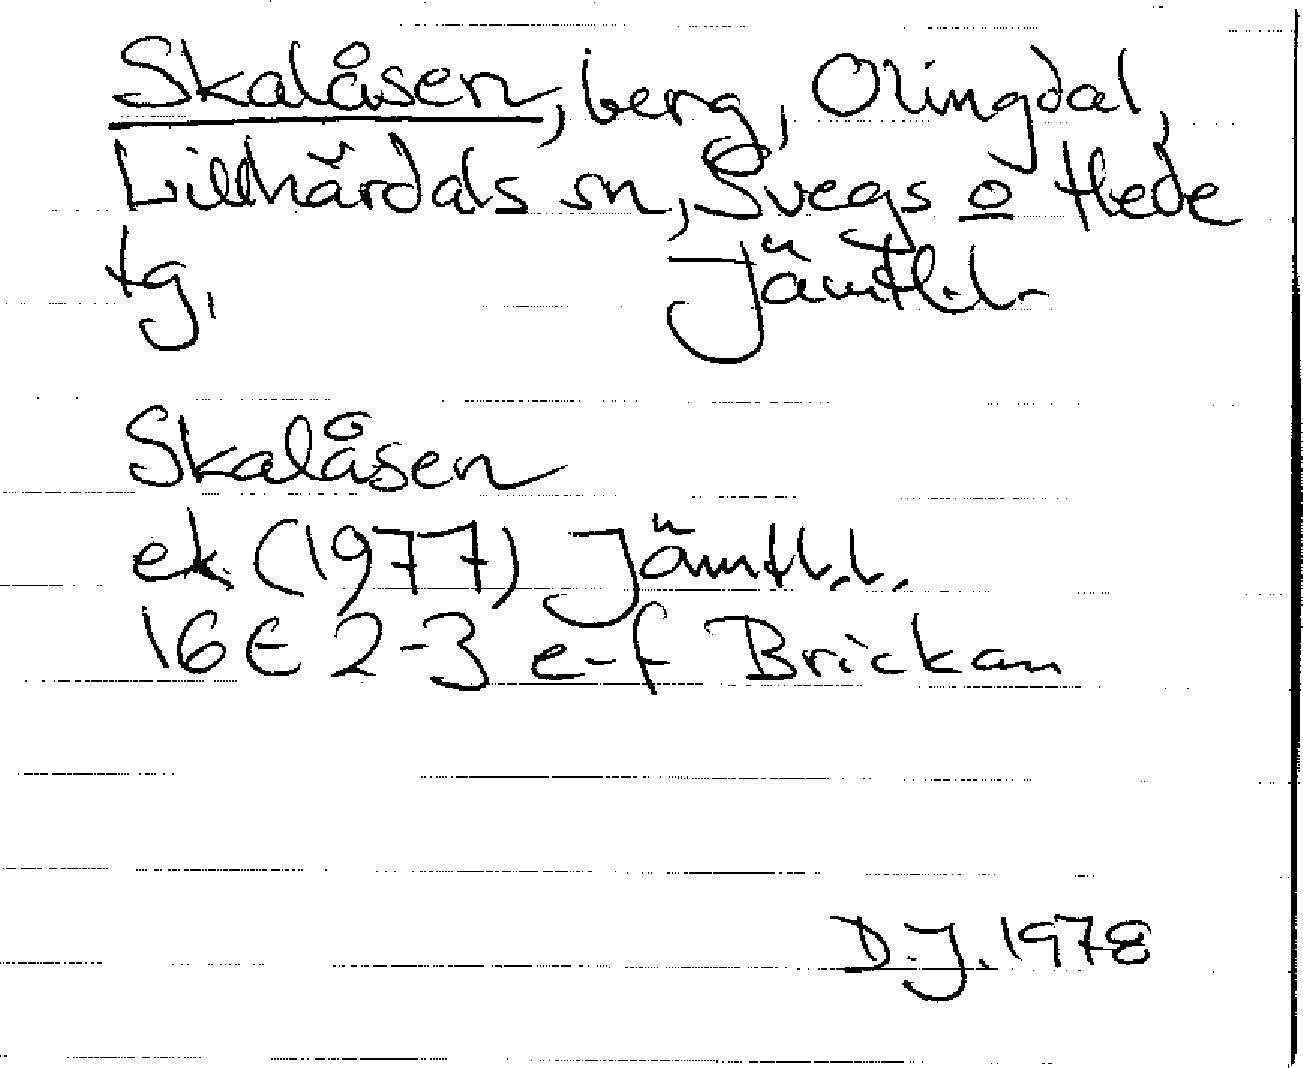 Skalåsen, berg, Olingdal,
Lillhärdals sn, Svegs o Hede
tg,
Jämtl.l.
Skalåsen
ek. (1977) Jämtl.l.
16E 2-3 e-f Brickan
D.J. 1978